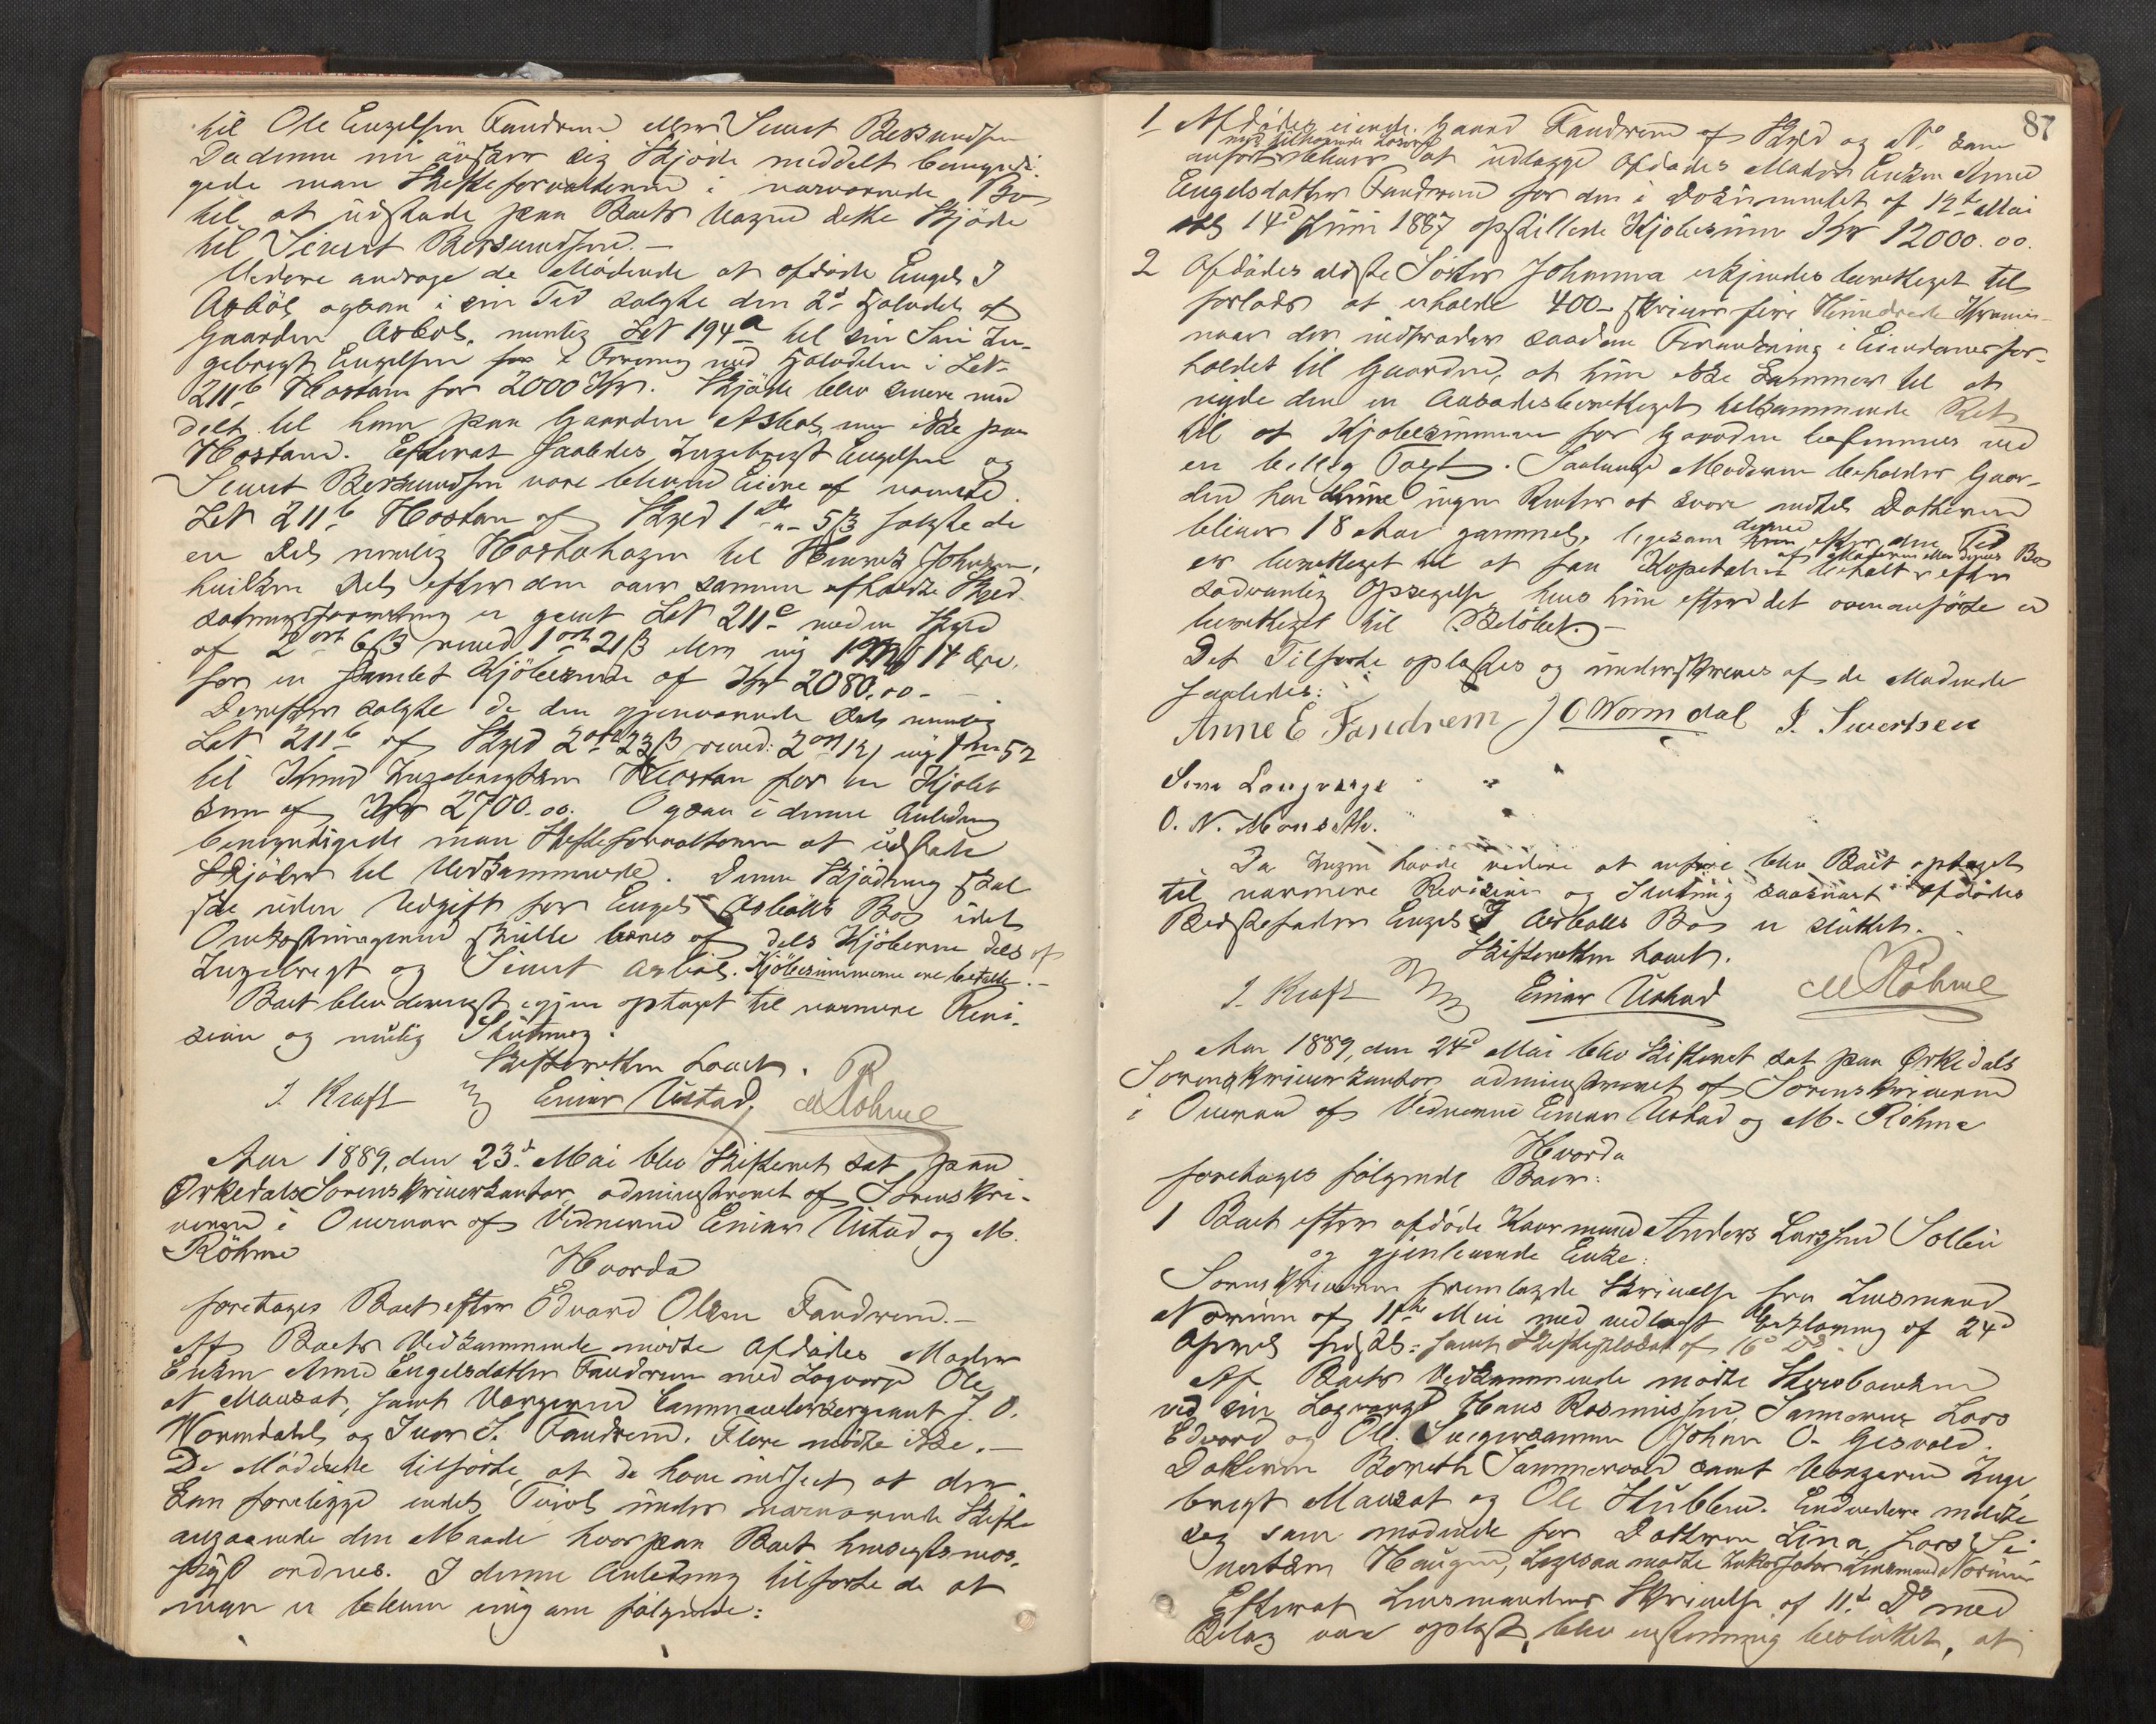 til Ole Engelsen Fandrem eller Sivert Bersvendsen
Da denne nu ønsker sig Skjøde meddelt bemyndi-
gede man Skifteforvalteren i nærværende Bo
til at udstede paa Boets Vegne dette Skjøde
til Sivert Bersvendsen. -
Videre androge de Mødende at afdøde Engel I
Asbøl ogsaa i sin Tid solgte den 2d Halvdel af
Gaarden Asbøl, nemlig LN 194a til sin Søn In-
gebrigt Engelsen for i Forening med Halvdelen i LN
211b Hostan for 2000 Kr. Skjøde blev senere med
delt til ham paa Gaarden Asbøl, men ikke paa
Hostan. Efterat saaledes Ingebrigt Engelsen og
Sivert Bersvendsen vare blevne Eiere af nævnte
LN 211b Hostan af Skyld 1 dlr - 5 ß solgte de
en Del nemlig Hostahagen til Henrik Johnsen,
hvilken Del efter den over samme afholdte Skyld
sætningsforretning er givet LN 211c med en Skyld
af 2 ort 6 ß revid. 1 ort 21 ß eller ny 1 Mk 14 Øre,
for en samlet Kjøbesum af Kr 2080.00 -
Derefter solgte de den gjenværende Del nemlig
LN 211b af Skyld 2 ort 23 ß revid: 2 ort 12 ny 1 m 52
til Knud Ingebrigtsen Hostan for en Kjøbe
sum af Kr 2700.00. Ogsaa i denne Anledning
bemyndigede man Skifteforvalteren at udstede
Skjøder til Vedkommende. Denne Skjødning skal
ske uden Udgift for Engel Asbølls Bo idet
Omkostningerne skulle bæres af dels Kjøberne dels af
Ingebrigt og Sivert Asbøl. Kjøbesummerne ere betalte. -
Boet blev dernæst igjen optaget til nærmere Revi-
sion og mulig Slutning.
Skifteretten hævet.
J. Kraft Einar Ustad, M Röhme
Aar 1889, den 23d Mai blev Skifteret sat paa
Ørkedals Sorenskriverkontor, administreret af Sorenskri-
veren i Overvær af Vidnerne Einar Ustad og M.
Röhme
Hvorda
foretoges Boet efter Edvard Olsen Fandrem. -
Af Boets Vedkommende mødte Afdødes Moder
Enken Anne Engelsdatter Fandrem med Lagværge Ole
N Monsøt, samtVærgerne Commandersergeant J. O.
Wormdahl og Iver S. Fandrem. Flere mødte ikke. -
De Mødende tilførte, at de have indseet at der
kan foreligge endel Tvivl under nærværende Skifte
angaaende den Maade hvorpaa Boet hensigtsmæs-
sigst ordnes. I denne Anledning tilførte de at
man er bleven enig om følgende:
87
1 Afdødes eiende Gaard Fandrem af Skyld og No som
med tilhørende Løsøre
anført bliver at udlægge Afdødes Moder Enken Anne
Engelsdatter Fandrem for den i Dokumentet af 12te Mai
14d Juni 1887 opstillede Kjøbesum Kr 12000.00.
2 Afdødes ældste Søster Johanna erkjendes berettiget til
forlods at erholde 400 - skriver fire Hundrede Kroner -
naar der indtræder saadan Forandring i Eiendomsfor-
holdet til Gaarden, at hun ikke kommer til at
nyde den en Aasædesberettiget tilkommende Ret
til at Kjøbesummen for Gaarden bestemmes ved
en billig Taxt. Saalænge Moderen beholder Gaar-
den har hun ingen Renter at svare indtil Datteren
bliver 18 Aar gammel, ligesom denne efter den Tid
af Moderen eller dennes Bo
er berettiget til at faa Kapitalen betalt efter
sædvanlig Opsigelse hvis hun efter det ovenanførte er
berettiget til Beløbet. -
Det Tilførte oplæstes og underskreves af de Mødende
saaledes:
Anne E Fandrem J O Wormdal I. Sivertsen
O. N. Monsøth.
Da Ingen havde videre at anføre blev Boet optaget
til nærmere Revision og Slutning saasnart Afdødes
Bedstefader Engel I Asbølls Bo er sluttet.
Skifteretten hævet.
J. Kraft Einar Ustad M Röhme
Aar 1889, den 24d Mai blev Skifteret sat paa Ørkedals
Sorenskriverkontor, administreret af Sorenskriveren
i Overvær af Vidnerne Einar Ustad og M. Röhme
Hvorda
foretoges følgende Boer:
1 Boet efter afdøde Kaarmand Anders Larssen Sollie
og gjenlevende Enke:
Sorenskriveren fremlagde Skrivelse fra Lensmand
Norum af 11te Mai med vedlagt Erklæring af 24d
April sidstl: samt Skifteplakat af 16d Ds.
Af Boets Vedkommende mødte Stervboenken
ved sin Lagværge Hans Rasmussen, Sønnerne Lars
Edvard og Ole. Svigersønnen Johan O. Gisvold.
Datteren Bereth samt Værgerne Inge
brigt Monsøt og Ole Hubben. Endvidere meldte
sig som mødende for Datteren Lina, Lars Si-
vertsen Haugen, Ligesaa mødte Inkassator Lensmand Norum
Efterat Lensmandens Skrivelse af 11d Ds med
Bilag var oplæst, blev enstemmig besluttet, at